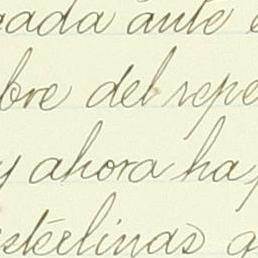 cada ante
bre del repe
y ahora ha
sterlinas